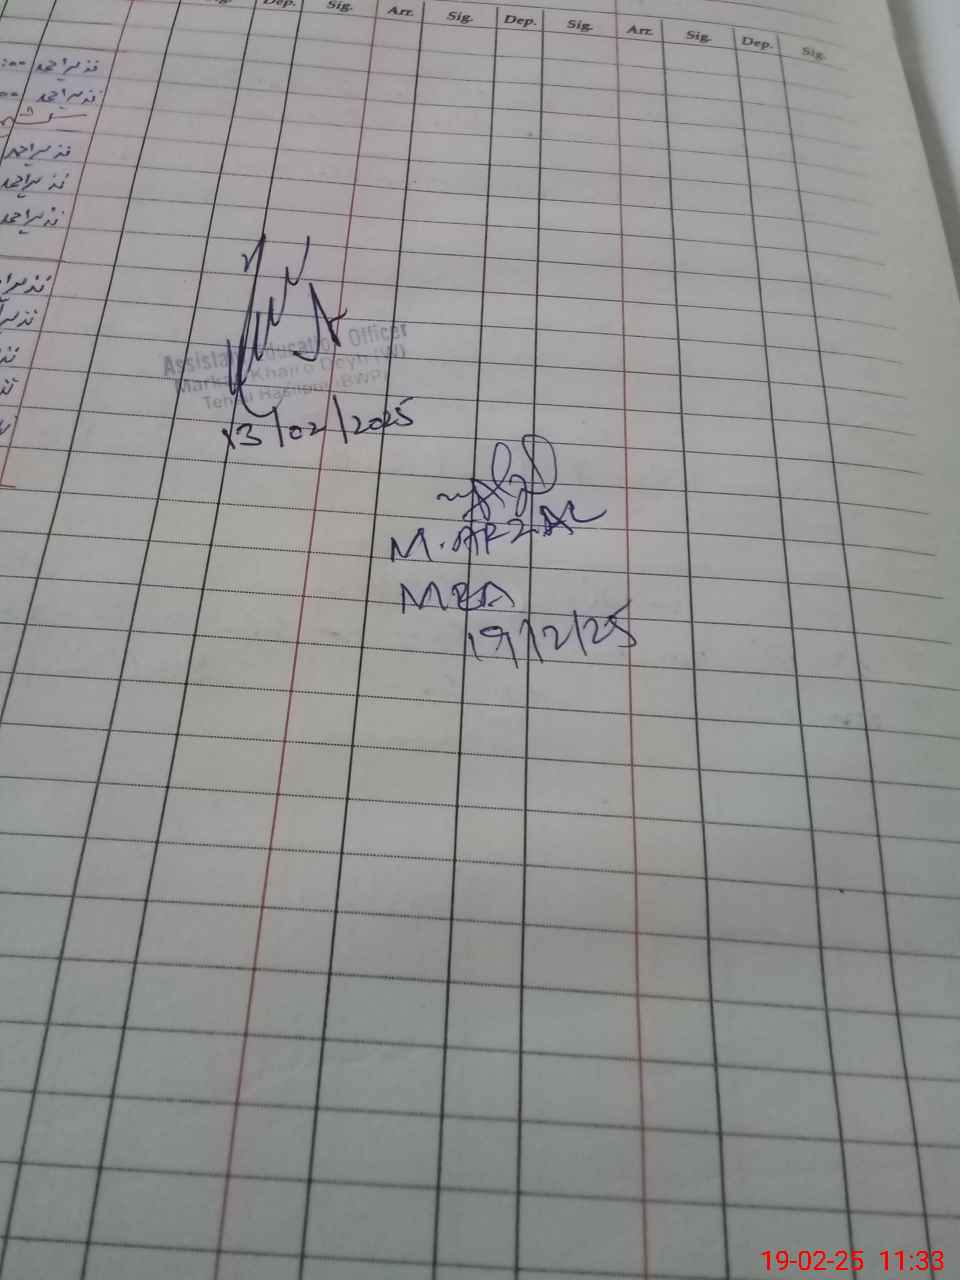 Sig. Dep. Sig. Arr. Sig. Dep. Sig. Arr. Sig. Dep. Sig.
نذیر احمد
نذیر احمد
نذیر احمد
نذیر احمد
نذیر احمد
Assistant Education Officer
Markaz Khairo Deyh (W)
Tehsil Hasilpur (BWP)
13/02/2025
M. AFZAL
MEA
19/2/25
19-02-25 11:33